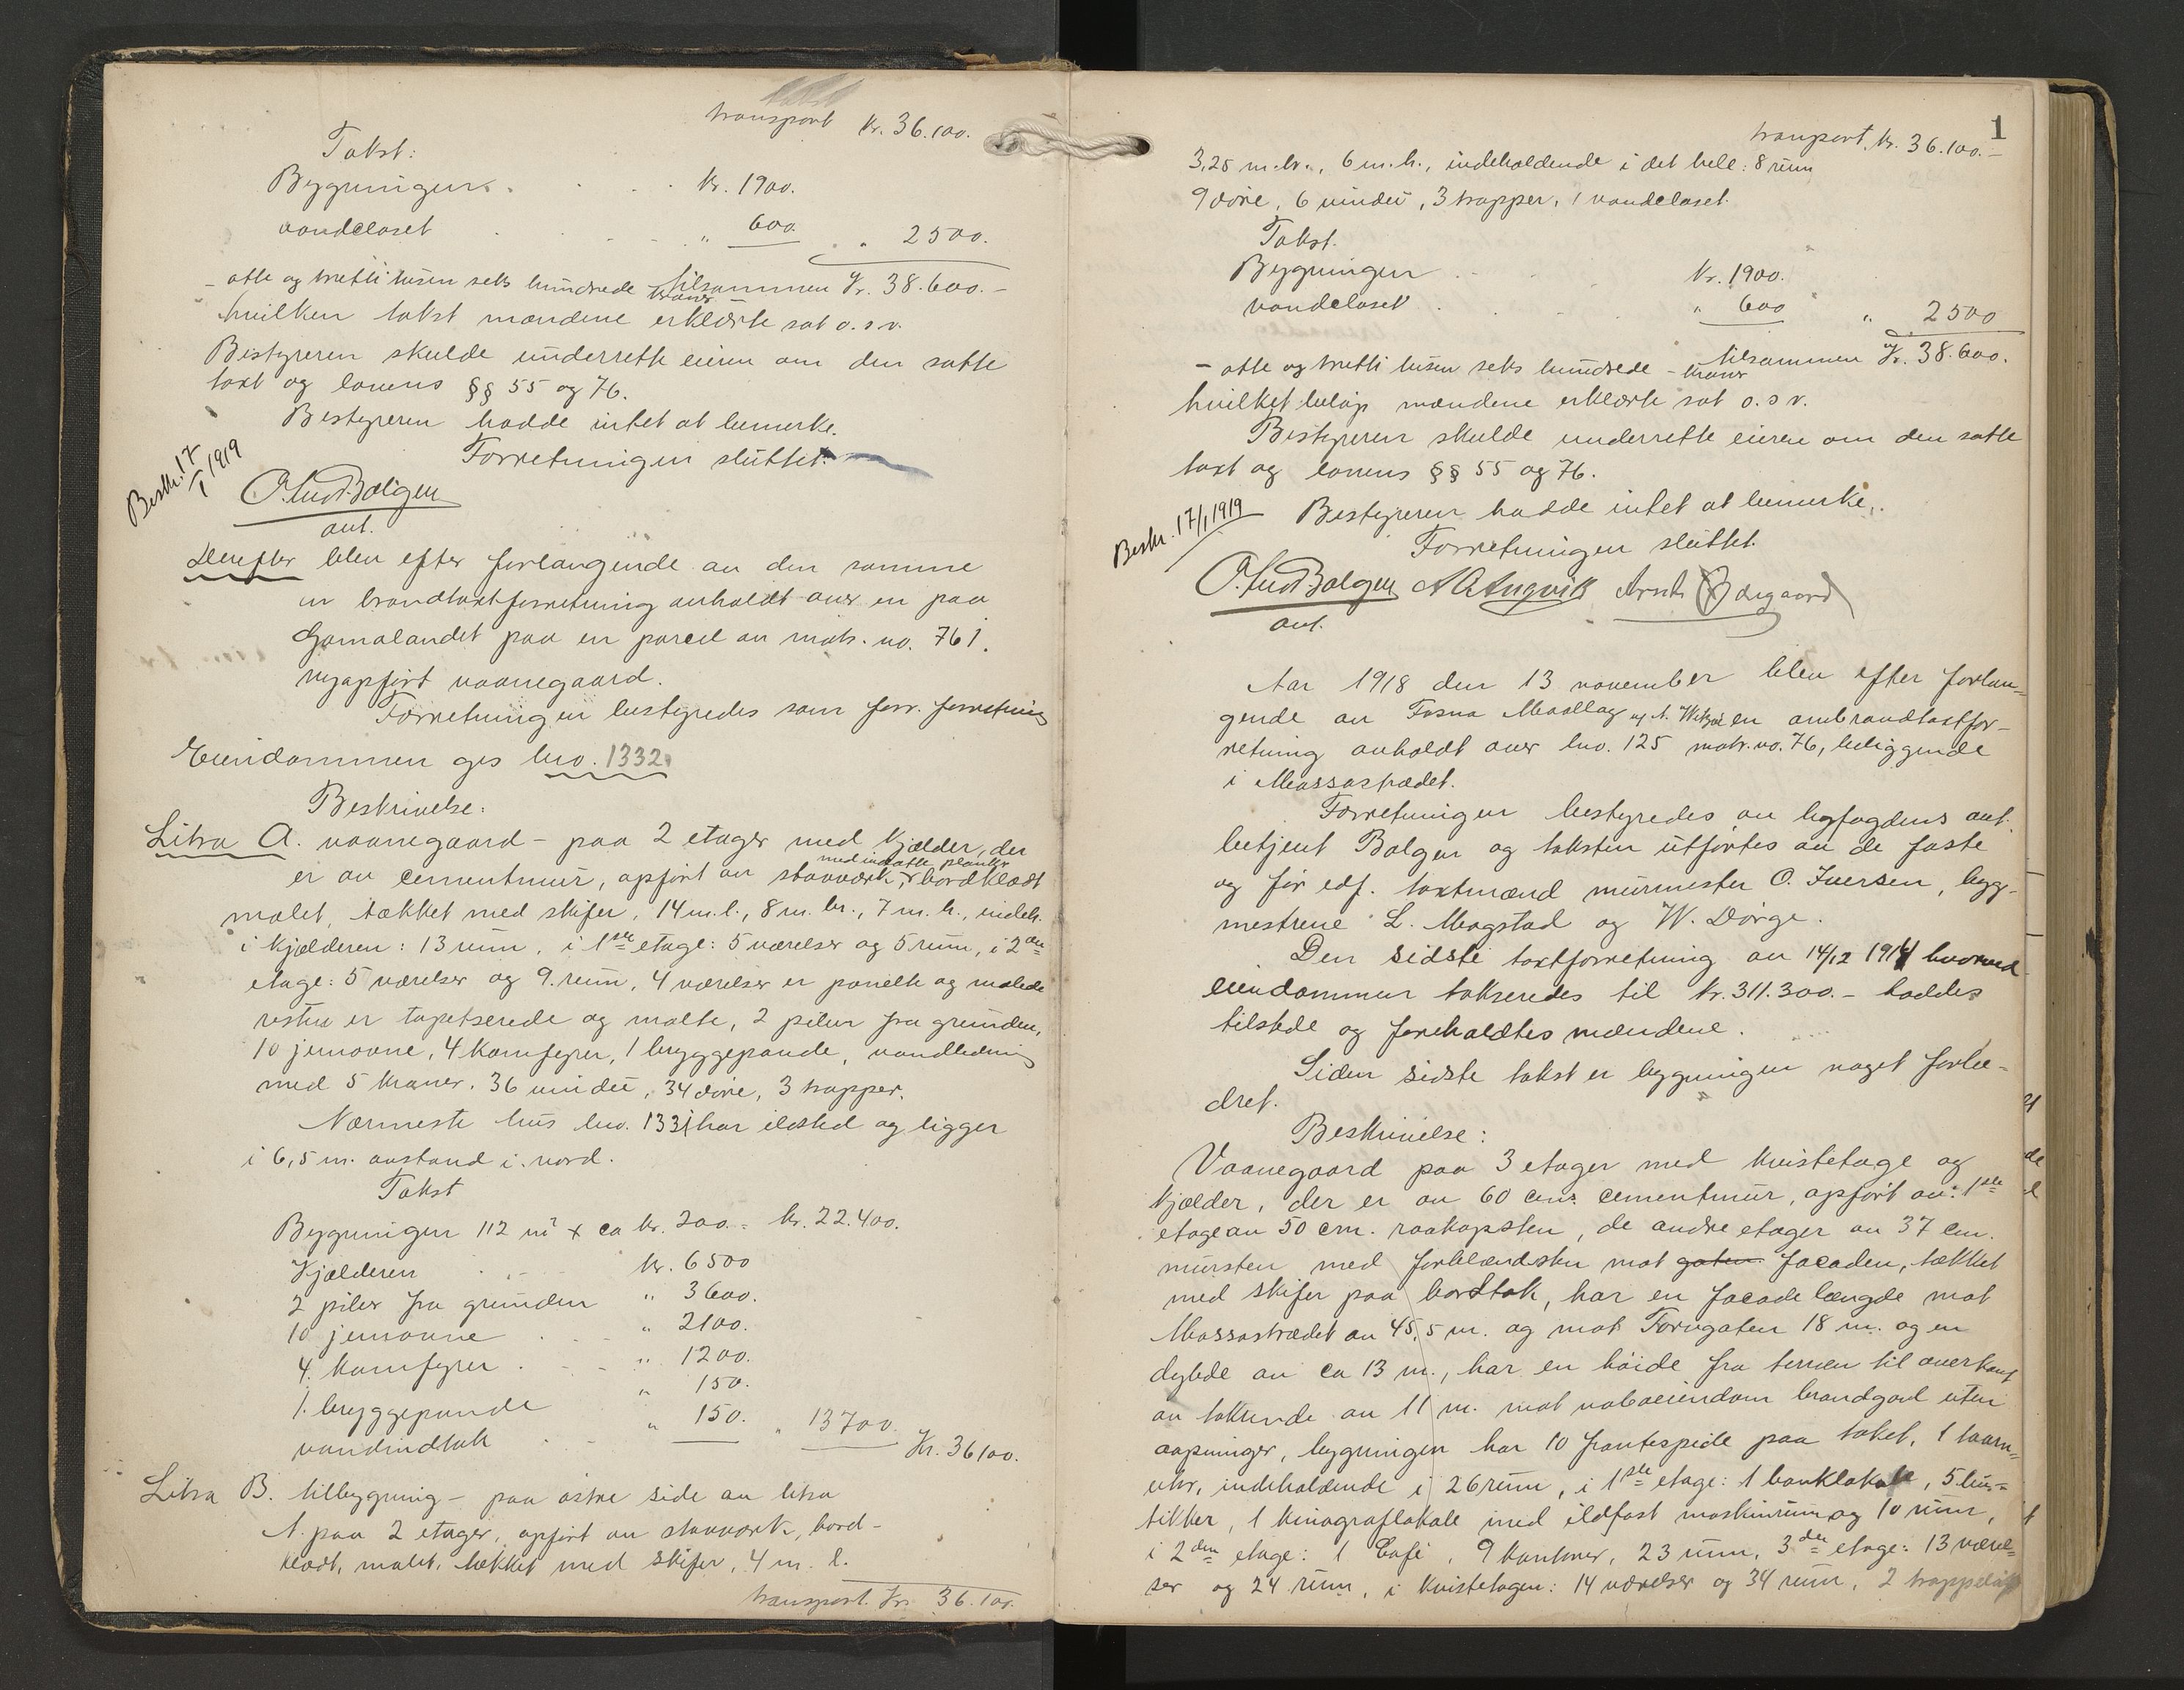 transport Kr. 36.100.
Takst:
Bygningen . . . . Kr. 1900.
vandcloset . . . . " 600. " 2500.
tilsammen Kr. 38.600.-
- otte og tretti tusen seks hundrede kroner -
hvilken takst mændene erklærte sat o.s.v.
Bestyreren skulde underrette eieren om den satte
taxt og lovens §§ 55 og 76.
Bestyreren hadde intet at bemerke.
Forretningen sluttet.
Beskr. 17/1 1919
O. Lud. Bolgen
aut.
Derefter blev efter forlangende av den samme
en brandtaxtforretning avholdt over en paa
Gomalandet paa en parcel av matr. no. 761.
nyopført vaanegaard.
Forretningen bestyredes som forr. forretning
Eiendommen gis bno. 1332.
Beskrivelse:
Litra A. vaanegaard - paa 2 etager med kjælder, der
med indsatte planker
er av cementmur, opført av stavverk, bordklædt
malet, tækket med skifer, 14 m. l., 8 m. br., 7 m. h., indeh.
i kjælderen: 13 rum, i 1ste etage: 5 værelser og 5 rum, i 2den
etage: 5 værelser og 9. rum, 4 værelser er panelte og malede
resten er tapetserede og malte, 2 piber fra grunden,
10 jernovne, 4 komfyrer, 1 bryggepande, vandledning
med 5 kraner. 36 vinduer, 34 døre, 3 trapper.
Nærmeste hus bno. 1331 har ildsted og ligger
i 6,5 m. avstand i. nord.
Takst
Bygningen 112 m² x ca kr. 200. = kr. 22.400.
Kjælderen . . - kr. 6500
2 piber fra grunden " 3600.
10 jernovne . . - " 2100.
4. komfyrer . - - " 1200.
1. bryggepande " 150.
vandindtak . - " 150. " 13700. Kr. 36100.
Litra B. tilbygning - paa østre side av litra
A. paa 2 etager, opført av stavverk, bord-
klædt, malet, tækket med skifer, 4 m. l.
transport. Kr. 36.100.
1
transport. kr. 36.100.-
3,25 m. br., 6 m. h., indeholdende i det hele: 8 rum
9 døre, 6 vinduer, 3 trapper, 1 vandcloset.
Takst.
Bygningen . - . Kr. 1900.
vandcloset . . . - " 600 " 2500
tilsammen Kr. 38.600.
- otte og tretti tusen seks hundrede kroner -
hvilket beløp mændene erklærte sat o. s v.
Bestyreren skulde underrette eieren om den satte
taxt og lovens §§ 55 og 76.
Beskr. 17/1 1919 Bestyreren hadde intet at bemerke.
Forretningen sluttet.
O. Lud. Bolgen A Angvik Arnt Ødegaard
aut.
Aar 1918 den 13 november blev efter forlan-
gende av Fosna Mosllag og en ombrandtaxtfor-
retning avholdt over bno. 125 matr. no. 76, beliggende
i Massastrædet.
Forretningen bestyredes av byfogdens aut.
betjent Bolgen og taksten utførtes av de faste
og før edf. taxtmænd murmester O. Iversen, bygg-
mestrene L. Magstad og W. Dørge.
Den sidste taxtforretning av 14/12 1914 hvorved
eiendommen takseredes til kr. 311.300.- haddes
tilstede og foreholdtes mændene.
Siden sidste takst er bygningen noget forbe-
dret.
Beskrivelse:
Vaanegaard paa 3 etager med kvistetage og
kjælder, der er av 60 cm. cementmur, opført av: 1ste
etage av 50 cm. raakopsten, de andre etager av 37 cm.
mursten med forblændsten mot gaten facaden, tækket
med skifer paa bordtak, har en facadelængde mot
Massastrædet av 45,5 m. og mot Torvgaten 18 m. og en
dybde av ca 13 m., har en høide fra terræn til overkant
av takrende av 11 m. mot naboeiendom brandgavl uten
aapninger, bygningen har 10 frontespice paa taket, 1 taarn-
uhr, indeholdende i 26 rum, i 1ste etage: 1 banklokale, 5 bu-
tikker, 1 kinograflokale med ildfast maskinrum og 10 rum,
i 2den etage: 1 Café, 9 kontorer, 23 rum, 3die etage: 13 værel-
ser og 24 rum, i kvistetagen: 14 værelser og 34 rum, 2 trappeløp